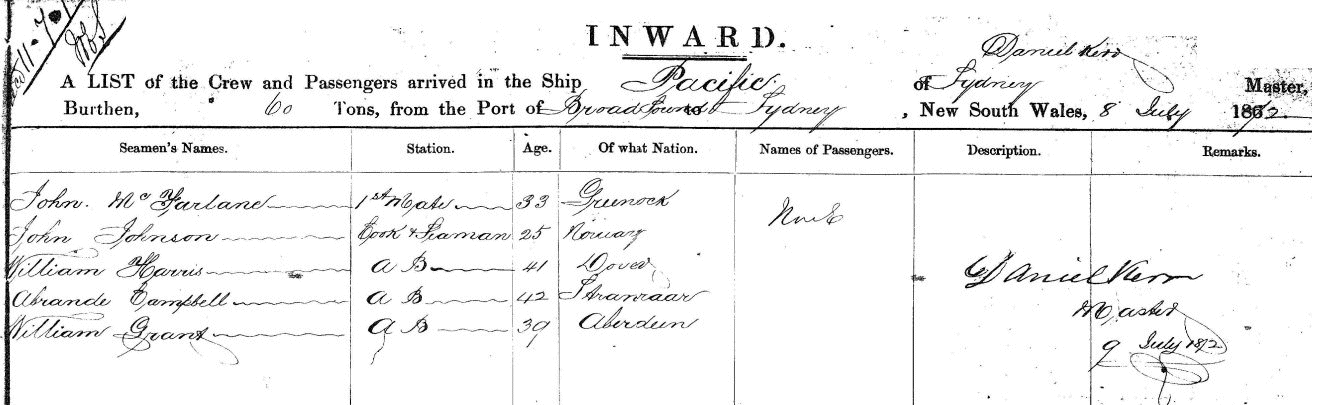 INWARD.
Daniel Kerr
A LIST of the Crew and Passengers arrived in the Ship Pacific of Sydney Master,
Burthen, 60 Tons, from the Port of Broad Sound to Sydney, New South Wales, 8 July 1872
Seamen's Names. Station. Age. Of what Nation. Names of Passengers. Description. Remarks.
John. McFarlane 1st Mate 33 Greenock None
John Johnson Cook & Seaman 25 Norway
William Harris A B 41 Dover Daniel Kerr
Abrande Campbell A B 42 Stranraar Master
William Grant A B 39 Aberdeen
9 July 1872